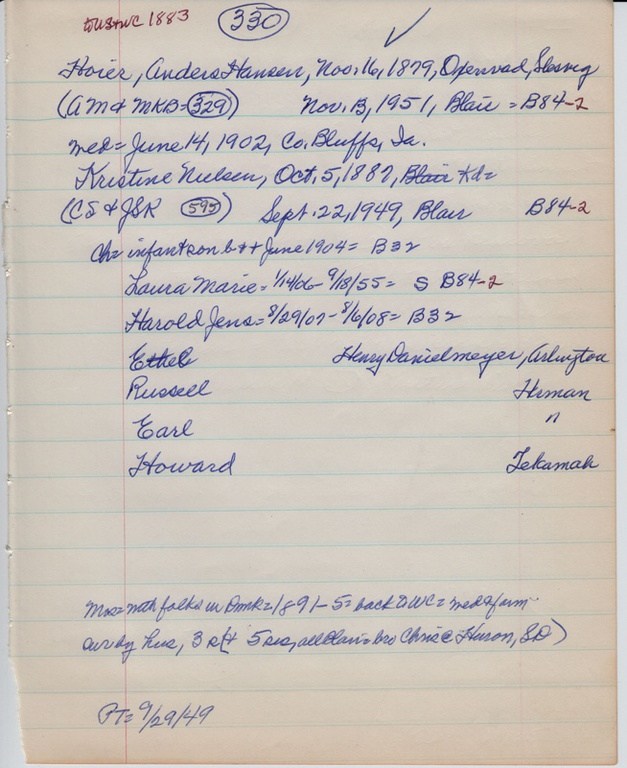 to US & WC 1883
330 ✓
Hoier, Anders Hansen, Nov. 16, 1879, Openvad, Slesvig
(AM & MKB = 329) Nov. 13, 1951, Blair = B84-2
med = June 14, 1902, Co. Bluffs, Ia.
Kristine Nielsen, Oct. 5, 1882, Blair Kd=
(CS & JSR 595) Sept. 22, 1949, Blair B84-2
Ch= infant son b & + June 1904 = B32
Laura Marie = 1/14/06 - 9/18/55 = S B84-2
Harold Jens = 8/29/07 - 8/6/08 = B32
Ethel Henry Danielmeyer, Arlington
Russell Herman
Earl "
Howard Tekamah
Mrs = with folks in Dmk = 1891-5 = back to WC = med & farm
surv by hus, 3 s (+ 5 sis, all Blair = bro Chris @ Huron, SD)
PT = 9/29/49